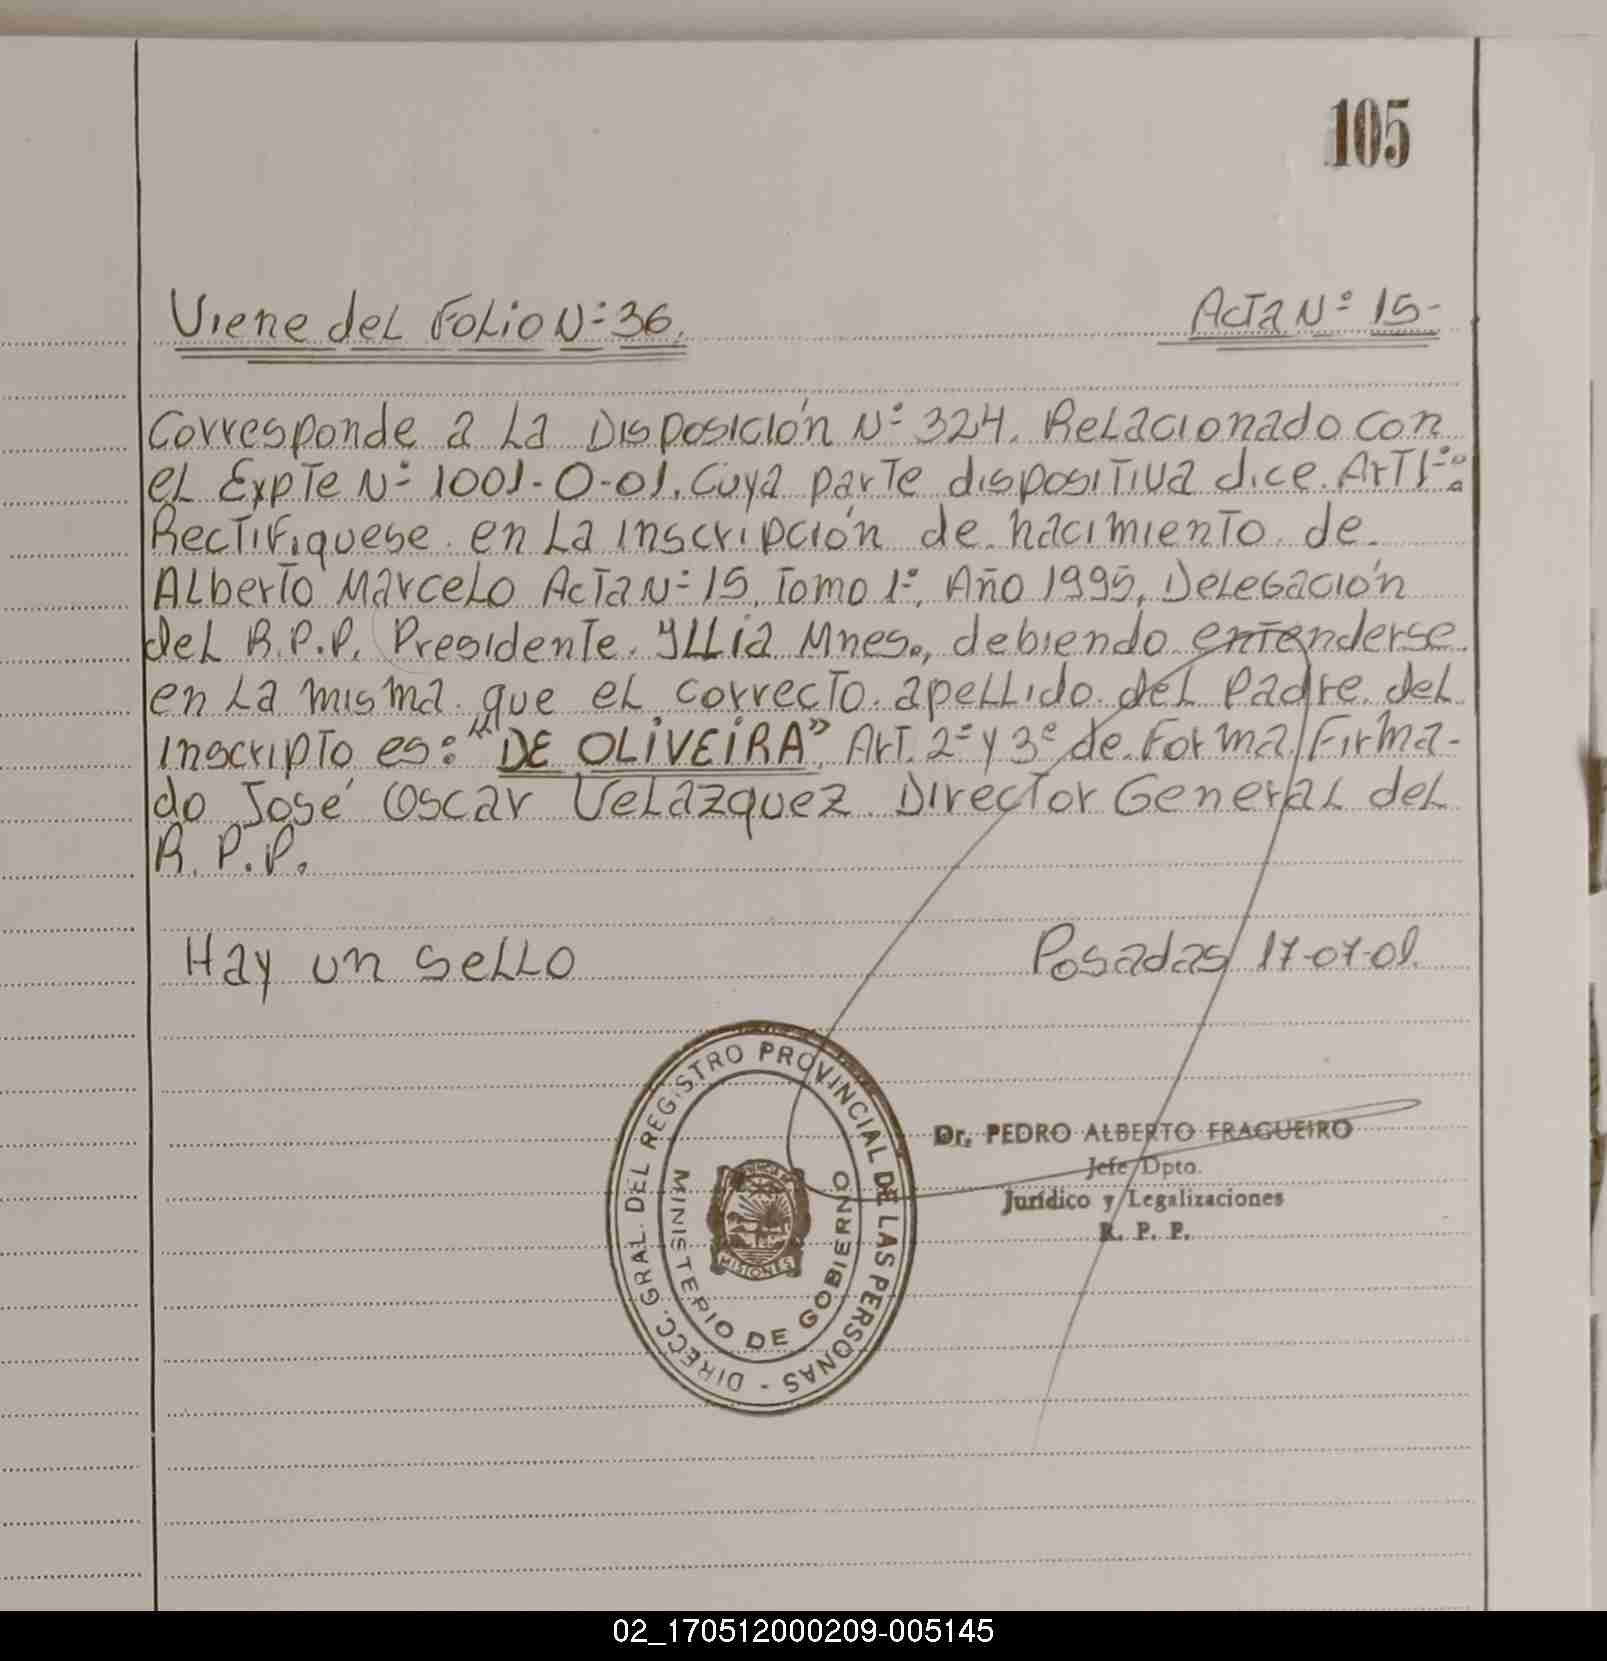 105
Viene del Folio Nº 36. Acta Nº 15-
Corresponde a La Disposición Nº 324. Relacionado con
el Expte Nº 1001-O-01. Cuya parte dispositiva dice. Art 1º:
Rectifiquese en La inscripción de nacimiento de
Alberto Marcelo Acta Nº 15, Tomo 1º, Año 1995, Delegación
del R.P.P. Presidente Yllia Mnes., debiendo entenderse
en La misma que el correcto apellido del Padre del
inscripto es: "DE OLIVEIRA", Art. 2º y 3º de Forma. Firma-
do José Oscar Velazquez Director General del
R.P.P.
Hay un sello Posadas 17-07-01.
DIRECC. GRAL. DEL REGISTRO PROVINCIAL DE LAS PERSONAS -
MINISTERIO DE GOBIERNO
MISIONES
Dr. PEDRO ALBERTO FRAGUEIRO
Jefe Dpto.
Jurídico y Legalizaciones
R. P. P.
02_170512000209-005145